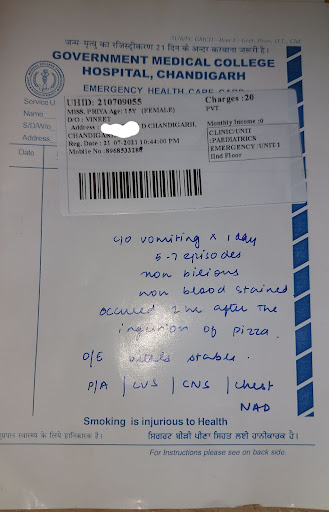 जन्म-मृत्यु का रजिस्ट्रीकरण 21 दिन के अन्दर करवाना जरूरी है।
GOVERNMENT MEDICAL COLLEGE
HOSPITAL, CHANDIGARH
EMERGENCY HEALTH CARE CARD
Service U
UHID: 210709055 Charges :20
MISS. PRIYA Age: 15Y (FEMALE) PVT
Name
D/O : VINEET
S/D/W/o
Address : D CHANDIGARH, Monthly Income :0
CHANDIGARH
Address
Reg. Date : 21-07-2021 10:44:00 PM
Mobile No :
CLINIC/UNIT
:PAEDIATRICS
EMERGENCY /UNIT-I
IInd Floor
Date
c/o vomiting x 1 day
5-7 episodes
non bilious
non blood stained
occured 2 hr after the
ingestion of pizza.
O/E vitals stable.
P/A | CVS | CNS | Chest
NAD
Smoking is injurious to Health
धूम्रपान स्वास्थ्य के लिये हानिकारक है। ਸਿਗਰਟ ਬੀੜੀ ਪੀਣਾ ਸਿਹਤ ਲਈ ਹਾਨੀਕਾਰਕ ਹੈ।
For Instructions please see on back side.